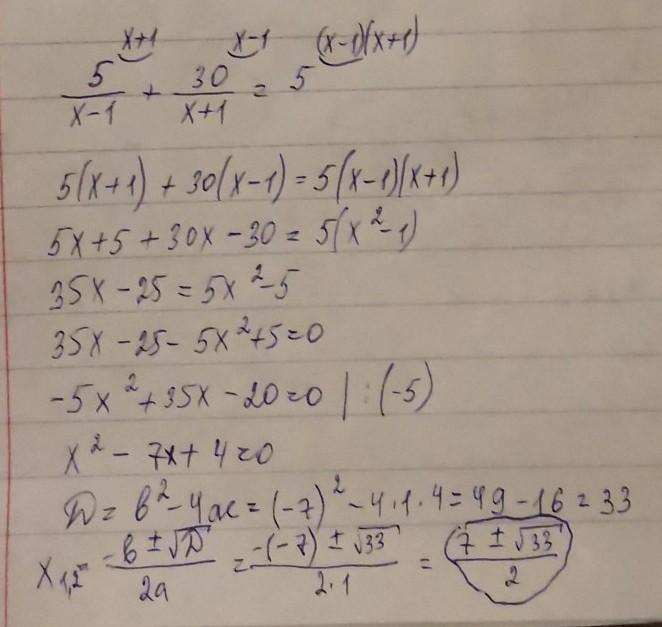 x+1 x-1 (x-1)(x+1)
5/(x-1) + 30/(x+1) = 5
5(x+1) + 30(x-1) = 5(x-1)(x+1)
5x+5 + 30x - 30 = 5(x²-1)
35x - 25 = 5x² - 5
35x - 25 - 5x² + 5 = 0
-5x² + 35x - 20 = 0 | : (-5)
x² - 7x + 4 = 0
D = b² - 4ac = (-7)² - 4·1·4 = 49 - 16 = 33
x₁,₂ = (-b ± √D)/(2a) = (-(-7) ± √33)/(2·1) = (7 ± √33)/2